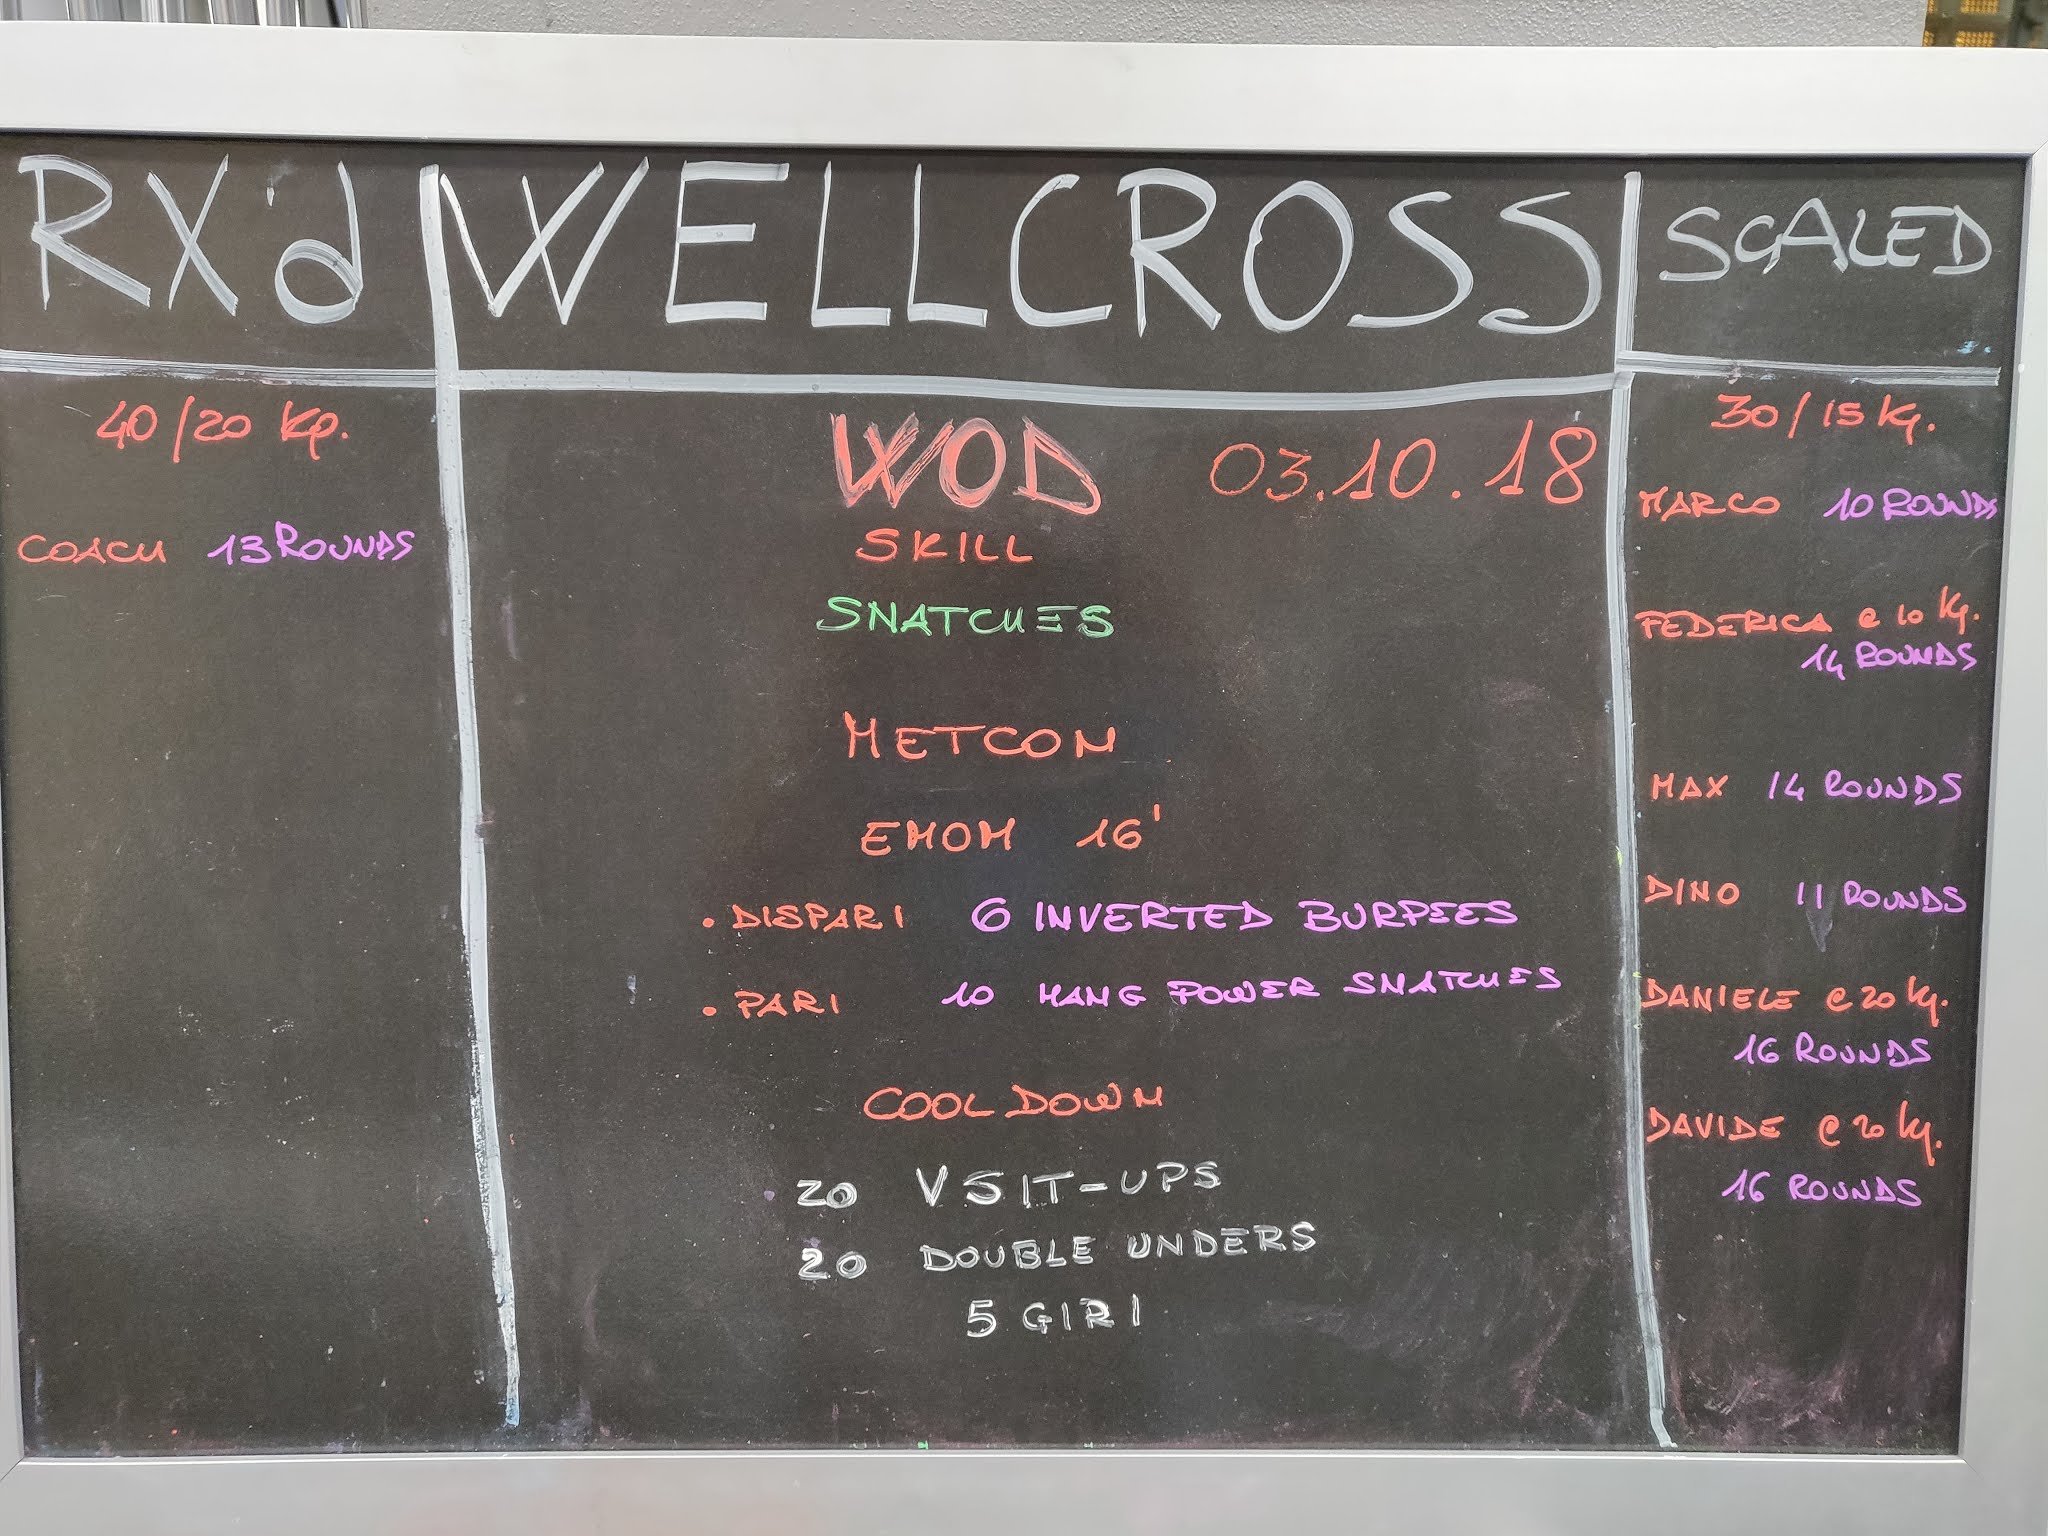 RX'd
40/20 Kg.
COACH 13 ROUNDS
WELLCROSS
WOD 03.10.18
SKILL
SNATCHES
METCON
EMOM 16'
• DISPARI 6 INVERTED BURPEES
• PARI 10 HANG POWER SNATCHES
COOL DOWN
20 V SIT-UPS
20 DOUBLE UNDERS
5 GIRI
SCALED
30/15 Kg.
MARCO 10 ROUNDS
FEDERICA @ 10 Kg.
14 ROUNDS
MAX 14 ROUNDS
DINO 11 ROUNDS
DANIELE @ 20 Kg.
16 ROUNDS
DAVIDE @ 20 Kg.
16 ROUNDS